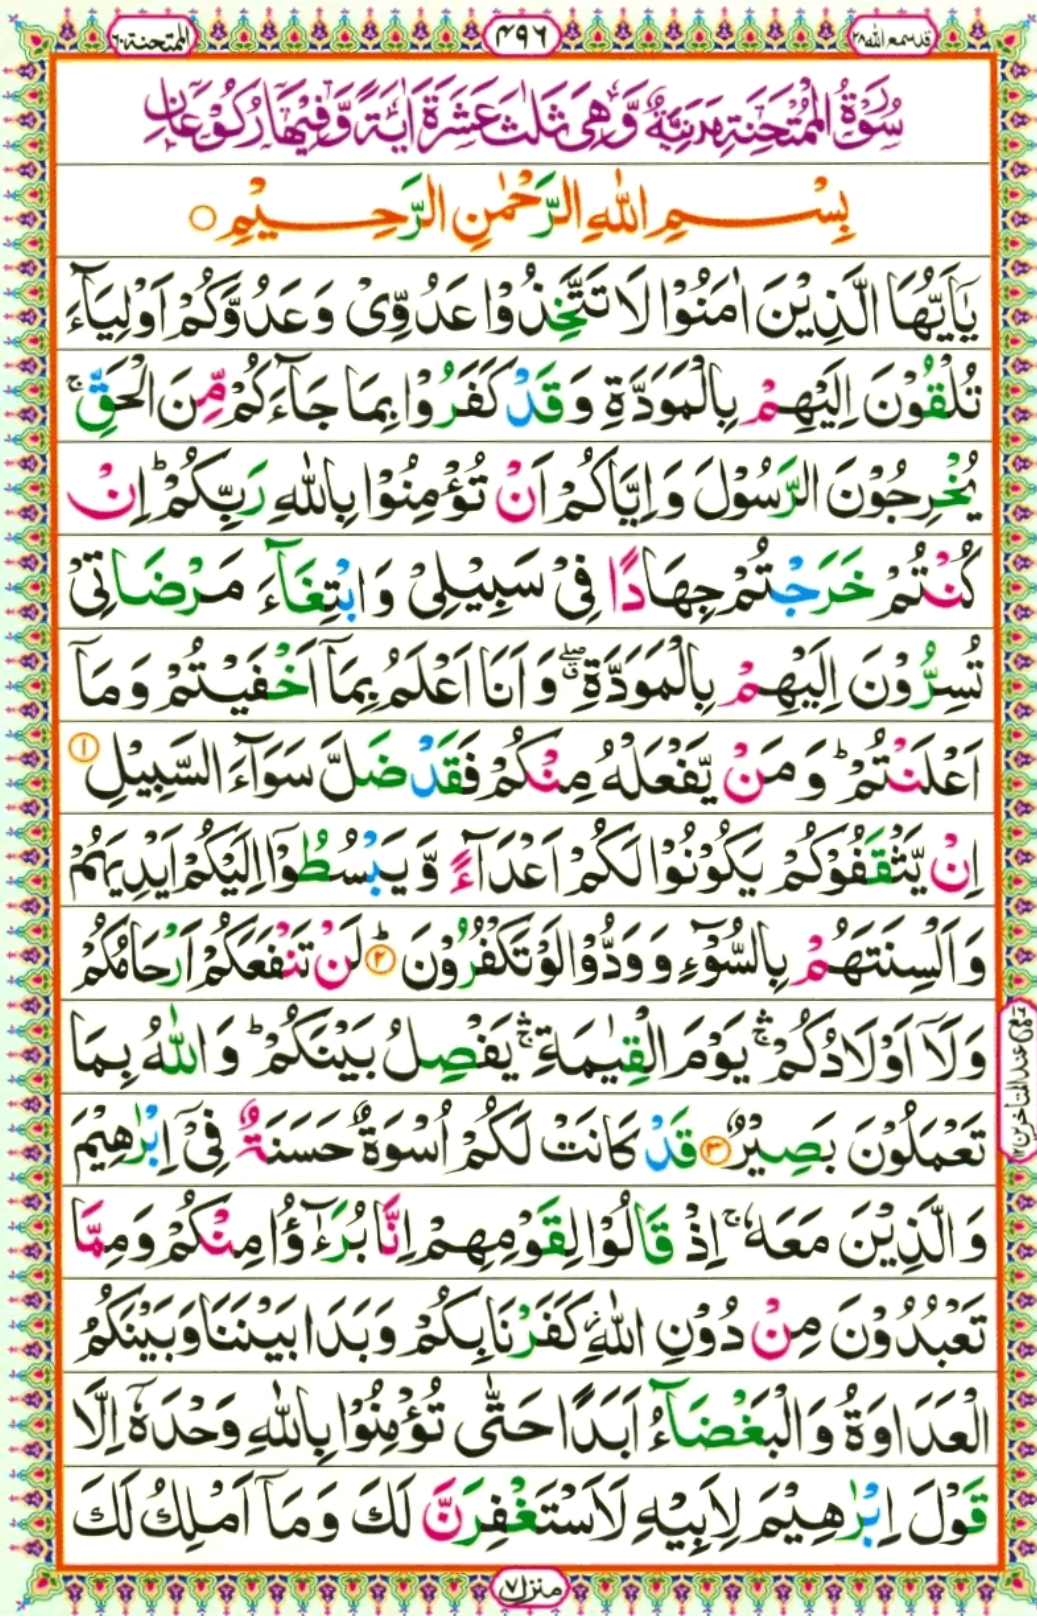 قد سمع الله ٢٨
٤٩٦
الممتحنة ٦٠
سُوْرَةُ الْمُمْتَحِنَةِ مَدَنِيَّةٌ وَّهِیَ ثَلٰثَ عَشَرَةَ اٰيَةً وَّفِيْهَا رُكُوْعَانِ
بِسْمِ اللّٰهِ الرَّحْمٰنِ الرَّحِيْمِ ○
يٰۤاَيُّهَا الَّذِيْنَ اٰمَنُوْا لَا تَتَّخِذُوْا عَدُوِّیْ وَعَدُوَّكُمْ اَوْلِيَآءَ
تُلْقُوْنَ اِلَيْهِمْ بِالْمَوَدَّةِ وَقَدْ كَفَرُوْا بِمَا جَآءَكُمْ مِّنَ الْحَقِّ ۚ
يُخْرِجُوْنَ الرَّسُوْلَ وَاِيَّاكُمْ اَنْ تُؤْمِنُوْا بِاللّٰهِ رَبِّكُمْ ؕ اِنْ
كُنْتُمْ خَرَجْتُمْ جِهَادًا فِیْ سَبِيْلِیْ وَابْتِغَآءَ مَرْضَاتِیْ
تُسِرُّوْنَ اِلَيْهِمْ بِالْمَوَدَّةِ ۖۗ وَاَنَا اَعْلَمُ بِمَاۤ اَخْفَيْتُمْ وَمَاۤ
اَعْلَنْتُمْ ؕ وَمَنْ يَّفْعَلْهُ مِنْكُمْ فَقَدْ ضَلَّ سَوَآءَ السَّبِيْلِ ١
اِنْ يَّثْقَفُوْكُمْ يَكُوْنُوْا لَكُمْ اَعْدَآءً وَّيَبْسُطُوْۤا اِلَيْكُمْ اَيْدِيَهُمْ
وَاَلْسِنَتَهُمْ بِالسُّوْٓءِ وَوَدُّوْا لَوْ تَكْفُرُوْنَ ؕ ٢ لَنْ تَنْفَعَكُمْ اَرْحَامُكُمْ
وَلَاۤ اَوْلَادُكُمْ ۛۚ يَوْمَ الْقِيٰمَةِ ۛۚ يَفْصِلُ بَيْنَكُمْ ؕ وَاللّٰهُ بِمَا
تَعْمَلُوْنَ بَصِيْرٌ ٣ قَدْ كَانَتْ لَكُمْ اُسْوَةٌ حَسَنَةٌ فِیْۤ اِبْرٰهِيْمَ
وَالَّذِيْنَ مَعَهٗ ۚ اِذْ قَالُوْا لِقَوْمِهِمْ اِنَّا بُرَءٰٓؤُا مِنْكُمْ وَمِمَّا
تَعْبُدُوْنَ مِنْ دُوْنِ اللّٰهِ ؗ كَفَرْنَا بِكُمْ وَبَدَا بَيْنَنَا وَبَيْنَكُمُ
الْعَدَاوَةُ وَالْبَغْضَآءُ اَبَدًا حَتّٰی تُؤْمِنُوْا بِاللّٰهِ وَحْدَهٗۤ اِلَّا
قَوْلَ اِبْرٰهِيْمَ لِاَبِيْهِ لَاَسْتَغْفِرَنَّ لَكَ وَمَاۤ اَمْلِكُ لَكَ
عند المتاخرين ١٢
منزل ٧